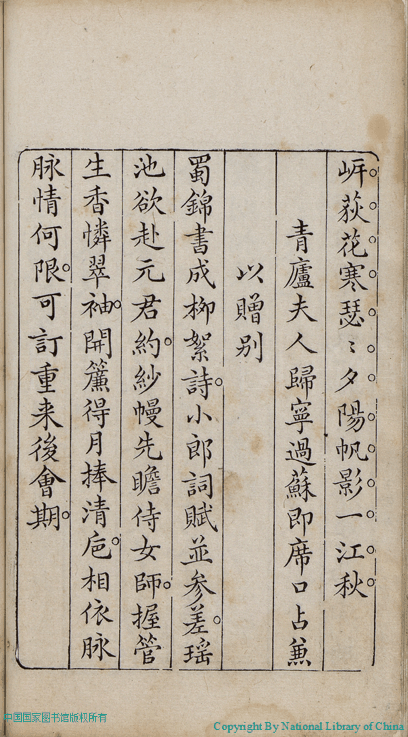 岍荻花寒瑟〻夕陽帆影一江秋
青廬夫人歸寧過蘇即席口占兼
以贈别
蜀錦書成柳絮詩小郎詞賦並参差瑶
池欲赴元君約紗幔先瞻侍女師握管
生香憐翠袖開簾得月捧清卮相依脉
脉情何限可訂重来後會期
中国国家图书馆版权所有
Copyright By National Library of China